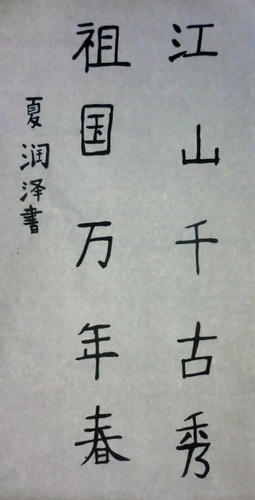 江山千古秀
祖国万年春
夏润泽書